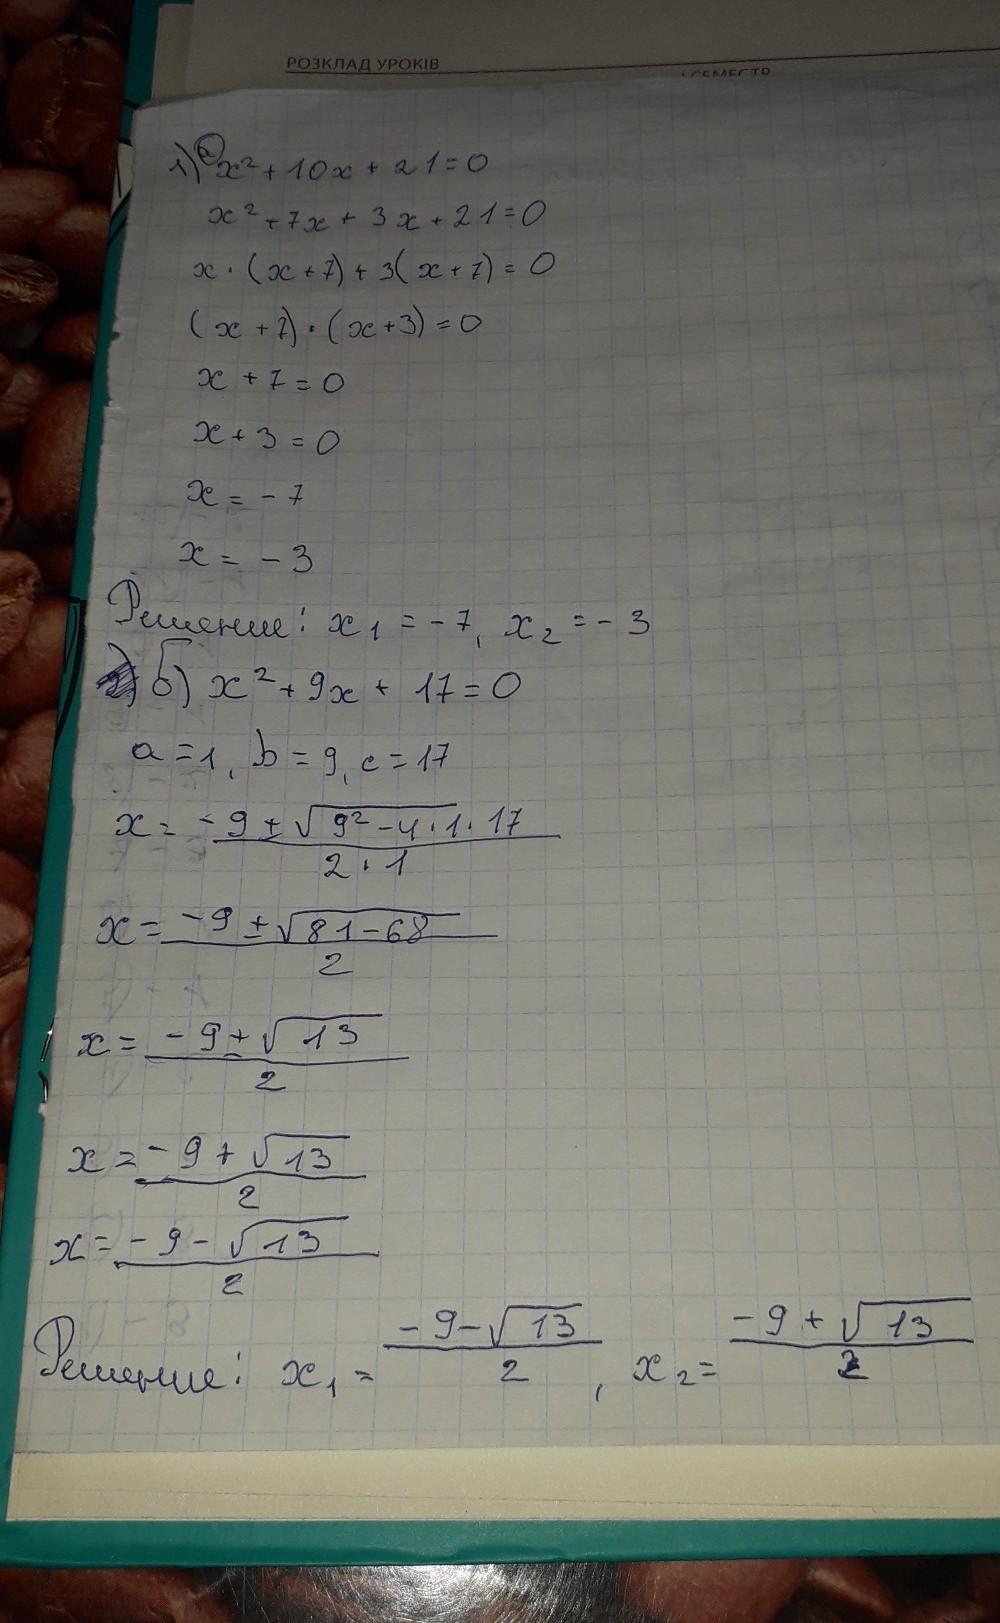 РОЗКЛАД УРОКІВ
І СЕМЕСТР
1) а) x² + 10x + 21 = 0
x² + 7x + 3x + 21 = 0
x · (x + 7) + 3(x + 7) = 0
(x + 7) · (x + 3) = 0
x + 7 = 0
x + 3 = 0
x = - 7
x = - 3
Решение: x₁ = - 7, x₂ = - 3
б) x² + 9x + 17 = 0
a = 1, b = 9, c = 17
x = (-9 ± √(9² - 4 · 1 · 17)) / (2 · 1)
x = (-9 ± √(81 - 68)) / 2
x = (-9 ± √13) / 2
x = (-9 + √13) / 2
x = (-9 - √13) / 2
Решение: x₁ = (-9 - √13) / 2, x₂ = (-9 + √13) / 2